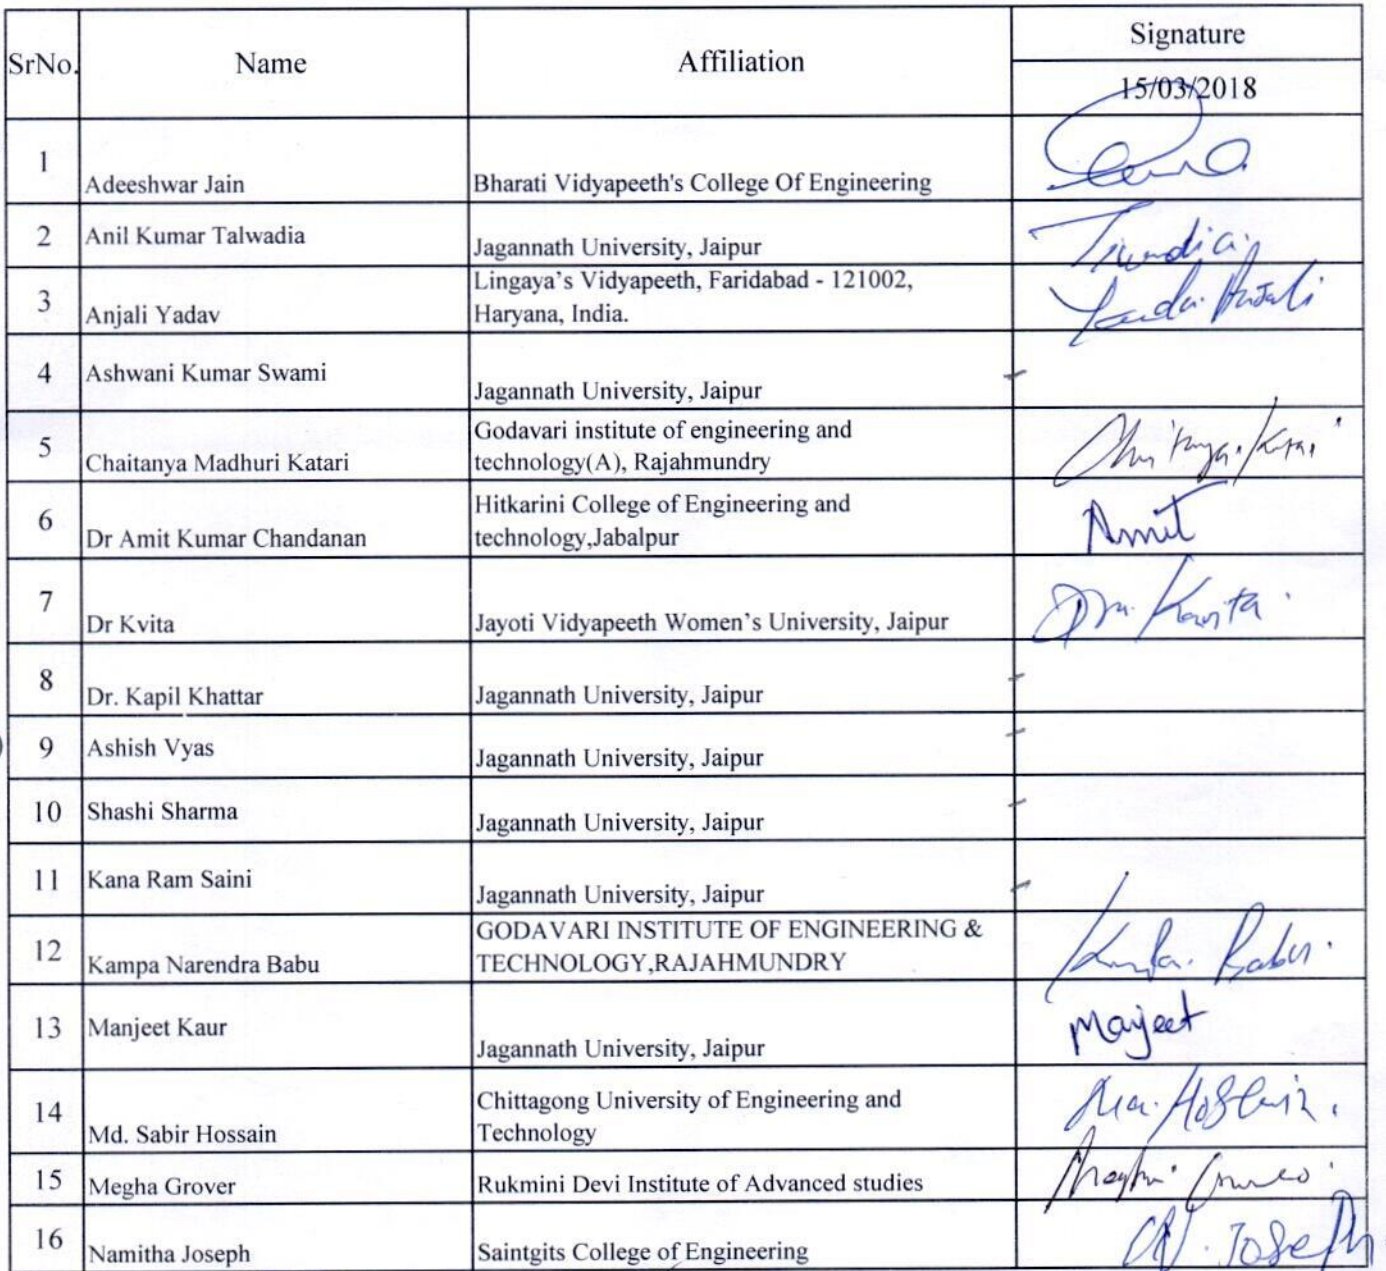 SrNo. Name Affiliation Signature
15/03/2018
1 Adeeshwar Jain Bharati Vidyapeeth's College Of Engineering
2 Anil Kumar Talwadia Jagannath University, Jaipur
3 Anjali Yadav Lingaya's Vidyapeeth, Faridabad - 121002,
Haryana, India.
4 Ashwani Kumar Swami Jagannath University, Jaipur
5 Chaitanya Madhuri Katari Godavari institute of engineering and
technology(A), Rajahmundry
6 Dr Amit Kumar Chandanan Hitkarini College of Engineering and Amit
technology,Jabalpur
7 Dr Kvita Jayoti Vidyapeeth Women's University, Jaipur Kavita
8 Dr. Kapil Khattar Jagannath University, Jaipur
9 Ashish Vyas Jagannath University, Jaipur
10 Shashi Sharma Jagannath University, Jaipur
11 Kana Ram Saini Jagannath University, Jaipur
12 Kampa Narendra Babu GODAVARI INSTITUTE OF ENGINEERING & Babu
TECHNOLOGY,RAJAHMUNDRY
13 Manjeet Kaur Jagannath University, Jaipur Manjeet
14 Md. Sabir Hossain Chittagong University of Engineering and
Technology
15 Megha Grover Rukmini Devi Institute of Advanced studies
16 Namitha Joseph Saintgits College of Engineering N. Joseph